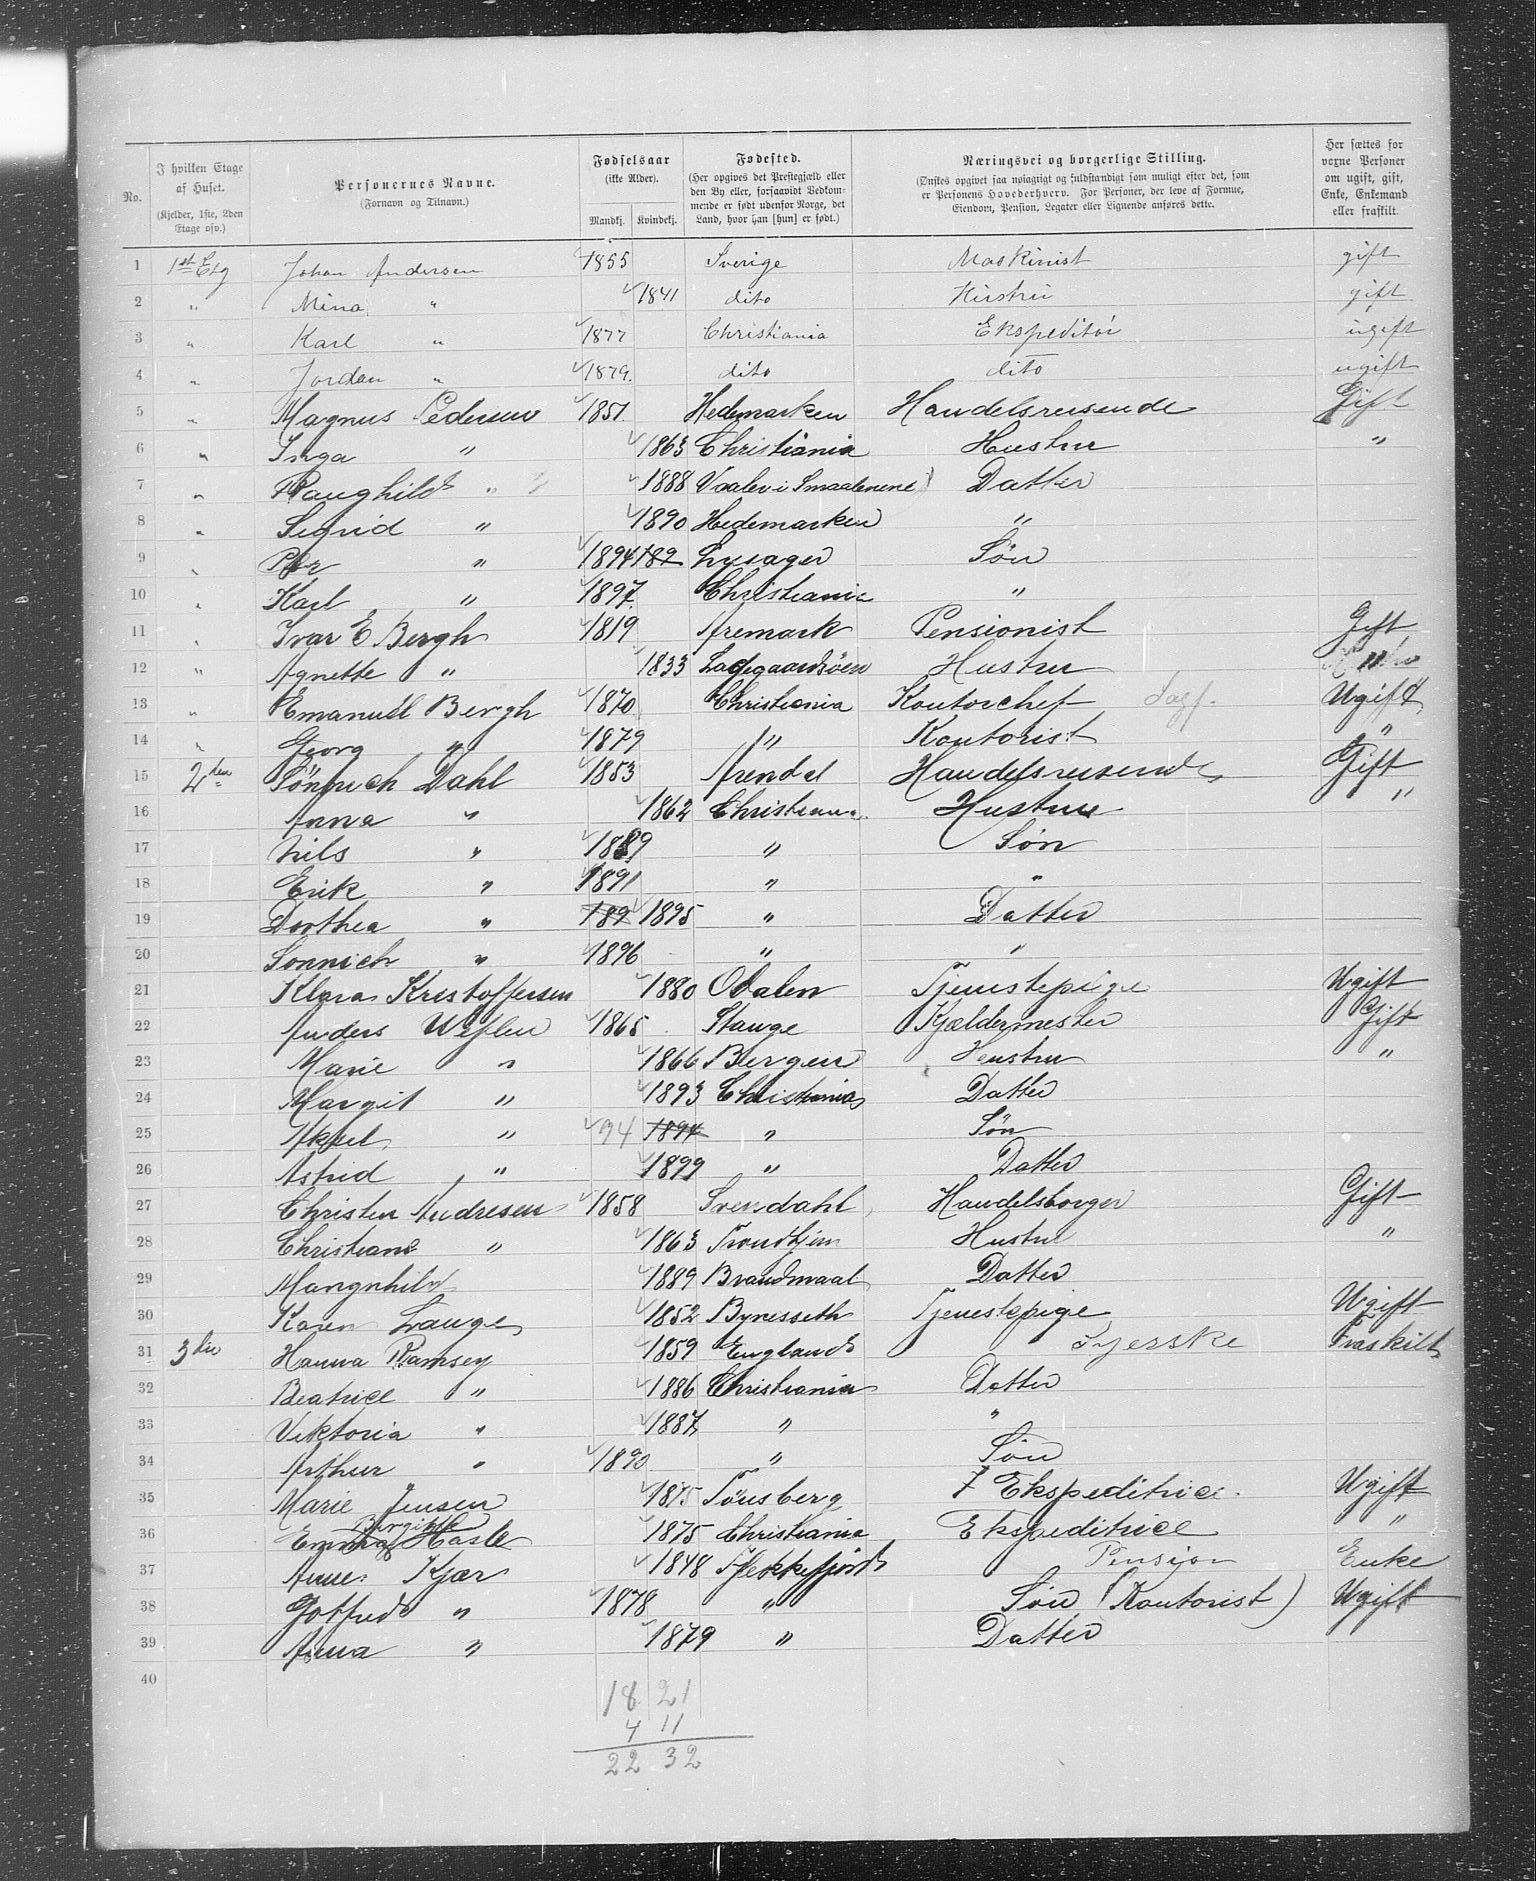 No.
I hvilken Etage af Huset.
(Kjelder, 1ste, 2den Etage osv.)
Personernes Navne.
(Fornavn og Tilnavn.)
Fødselsaar
(ikke Alder).
Mandkj. Kvindekj.
Fødested.
(Her opgives det Prestegjæld eller den By eller, forsaavidt Vedkommende er født udenfor Norge, det Land, hvor han [hun] er født.)
Næringsvei og borgerlige Stilling.
(Ønskes opgivet saa nøiagtigt og fuldstandigt som muligt efter det, som er Personens Hovederhverv. For Personer, der leve af Formue, Eiendom, Pension, Legater eller Lignende anføres dette.
Her sættes for voxne Personer om ugift, gift, Enke, Enkemand eller fraskilt.
1 1st Etg Johan Andersen 1855 Sverige Maskinist gift
2 " Mina " 1841 dito Hustru gift
3 " Karl " 1877 Christiania Ekspeditør ugift
4 " Jordan " 1879. dito dito ugift
5 " Magnus Pedersen 1851. Hedemarken Handelsreisende Gift
6 " Inga " 1863 Christiania Hustru "
7 " Raughild " 1888 Vaaler i Smaalenene Datter
8 " Sigrid " 1890 Hedemarken "
9 " Per " 1894 182 Søn
10 " Karl " 1897. Christiania "
11 " Ivar E Bergh 1819 Aremark Pensionist Gift
12 " Agnette " 1833 Ladegaardsøen Hustru "
13 " Emanuel Bergh 1870 Christiania Kontorchef Sagf. Ugift
14 " Georg " 1879 " Kontorist "
15 2den Sönnich Dahl 1853 Arendal Handelsreisende Gift
16 Anna " 1862 Christiania Hustru "
17 Nils " 1889 " Søn
18 Erik " 1891 " "
19 Dorthea " 189 1895 " Datter
20 Sonnich " 1896 " "
21 Klara Kristoffersen 1880 Odalen Tjenestepige Ugift
22 Anders Weflen 1865 Stange Kjældermester Gift
23 Marie " 1866 Bergen Hustru "
24 Margit " 1893 Christiania Datter
25 Aksel " 94 1894 " Søn
26 Astrid " 1899 " Datter
27 Christen Andresen 1858 Svendahl Handelsborger Gift
28 Christiane " 1863 Trondhjem Hustru "
29 Mangnhild 1889 Datter
30 Karen Lange 1852 Bynesseth Tjenestepige Ugift
31 3die Hanna Ramsey 1859 England Syerske Fraskilt
32 Beatrice " 1886 Christiania Datter
33 Viktoria " 1887 " "
34 Arthur " 1890 " Søn
35 Marie Jensen 1875 Tønsberg Ekspeditrice. Ugift
36 Birgitte Hasle 1875 Christiania Ekspeditrice "
37 Anne Kjær 1848 Flekkefjord Pensjon Enke
38 Gotfred " 1878 " Søn (Kontorist) Ugift
39 Anna " 1879 " Datter
40
18 21
4 11
22 32